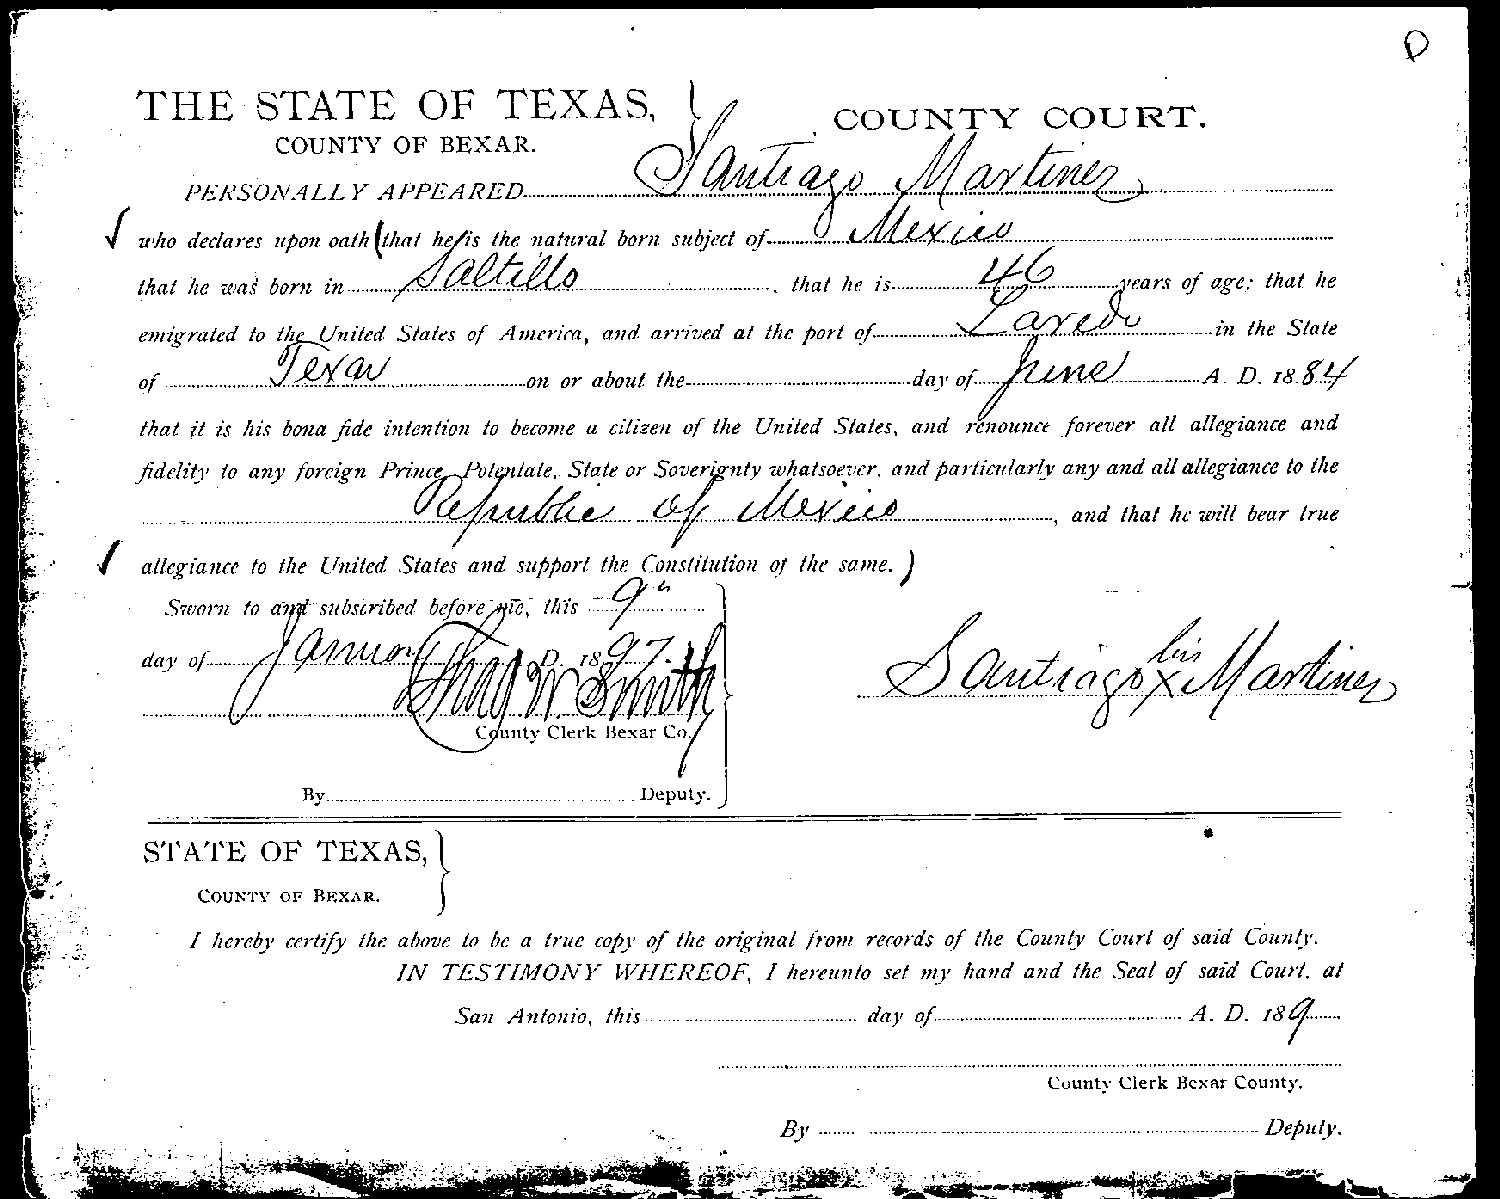 D
THE STATE OF TEXAS,
COUNTY OF BEXAR.
COUNTY COURT.
PERSONALLY APPEARED Santiago Martinez
who declares upon oath (that he is the natural born subject of Mexico
that he was born in Saltillo, that he is 46 years of age; that he
emigrated to the United States of America, and arrived at the port of Laredo in the State
of Texas on or about the day of June A. D. 1884
that it is his bona fide intention to become a citizen of the United States, and renounce forever all allegiance and
fidelity to any foreign Prince, Potentate, State or Soverignty whatsoever, and particularly any and all allegiance to the
Republic of Mexico, and that he will bear true
allegiance to the United States and support the Constitution of the same.)
Sworn to and subscribed before me, this 9th
day of January A. D. 1897.
Thad W. Smith
County Clerk Bexar Co.
By Deputy.
Santiago his x Martinez
STATE OF TEXAS,
COUNTY OF BEXAR.
I hereby certify the above to be a true copy of the original from records of the County Court of said County.
IN TESTIMONY WHEREOF, I hereunto set my hand and the Seal of said Court, at
San Antonio, this day of A. D. 189
County Clerk Bexar County.
By Deputy.